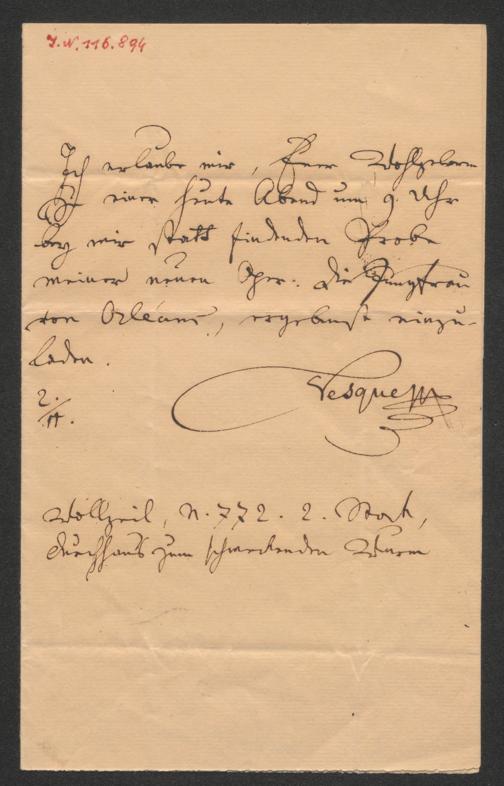 I.N.116.894
Ich erlaube mir, Euer Wohlgeborn
zu einer heute Abend um 9. Uhr
bey mir statt findenden Probe
meiner neuen Oper: die Jungfrau
von Orléans, ergebenst einzu-
laden.
Vesque
2./11.
Wollzeil, N. 772. 2. Stock,
Durchhaus zum schmeckenden Wurm